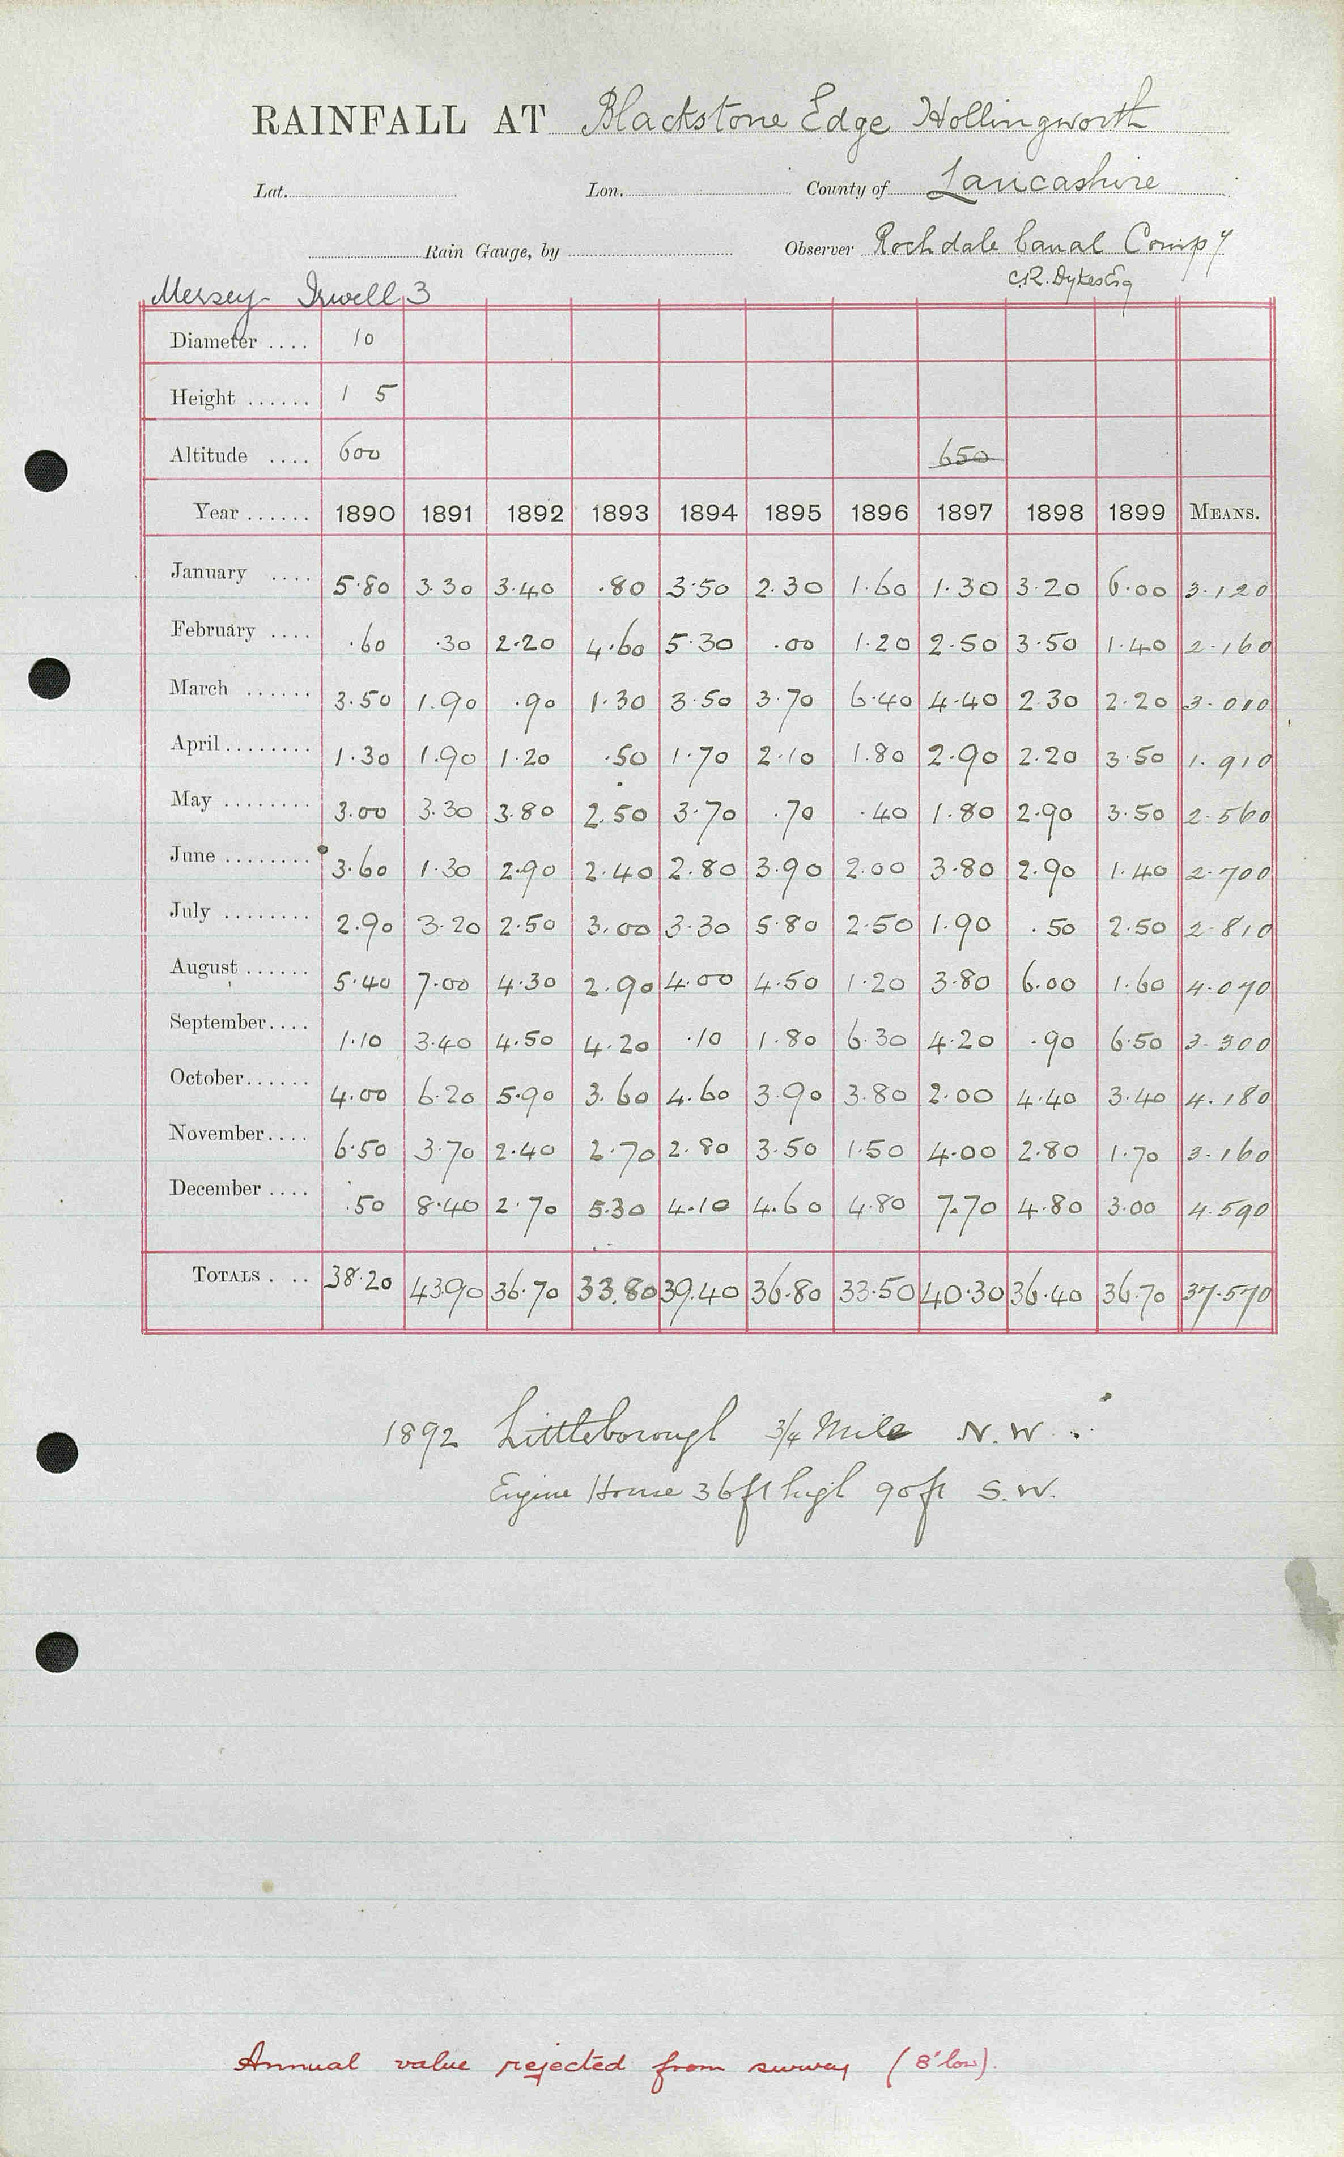 RAINFALL AT Blackstone Edge Hollingworth
Lat. Lon. County of Lancashire
Rain Gauge, by Observer Rochdale Canal Compy
C.R. Dykes Esq
Mersey - Irwell 3
Diameter .... 10
Height ...... 1 5
Altitude .... 600 650
Year ...... 1890 1891 1892 1893 1894 1895 1896 1897 1898 1899 MEANS.
January .... 5.80 3.30 3.40 .80 3.50 2.30 1.60 1.30 3.20 6.00 3.120
February .... .60 .30 2.20 4.60 5.30 .00 1.20 2.50 3.50 1.40 2.160
March ...... 3.50 1.90 .90 1.30 3.50 3.70 6.40 4.40 2.30 2.20 3.010
April ........ 1.30 1.90 1.20 .50 1.70 2.10 1.80 2.90 2.20 3.50 1.910
May ........ 3.00 3.30 3.80 2.50 3.70 .70 .40 1.80 2.90 3.50 2.560
June ........ 3.60 1.30 2.90 2.40 2.80 3.90 2.00 3.80 2.90 1.40 2.700
July ........ 2.90 3.20 2.50 3.00 3.30 5.80 2.50 1.90 .50 2.50 2.810
August ...... 5.40 7.00 4.30 2.90 4.00 4.50 1.20 3.80 6.00 1.60 4.070
September.... 1.10 3.40 4.50 4.20 .10 1.80 6.30 4.20 .90 6.50 3.300
October...... 4.00 6.20 5.90 3.60 4.60 3.90 3.80 2.00 4.40 3.40 4.180
November.... 6.50 3.70 2.40 2.70 2.80 3.50 1.50 4.00 2.80 1.70 3.160
December .... .50 8.40 2.70 5.30 4.10 4.60 4.80 7.70 4.80 3.00 4.590
TOTALS . .. 38.20 43.90 36.70 33.80 39.40 36.80 33.50 40.30 36.40 36.70 37.570
1892 Littleborough 3/4 Mile N.W.
Engine House 36ft high 90ft S.W.
Annual value rejected from survey (8" low).